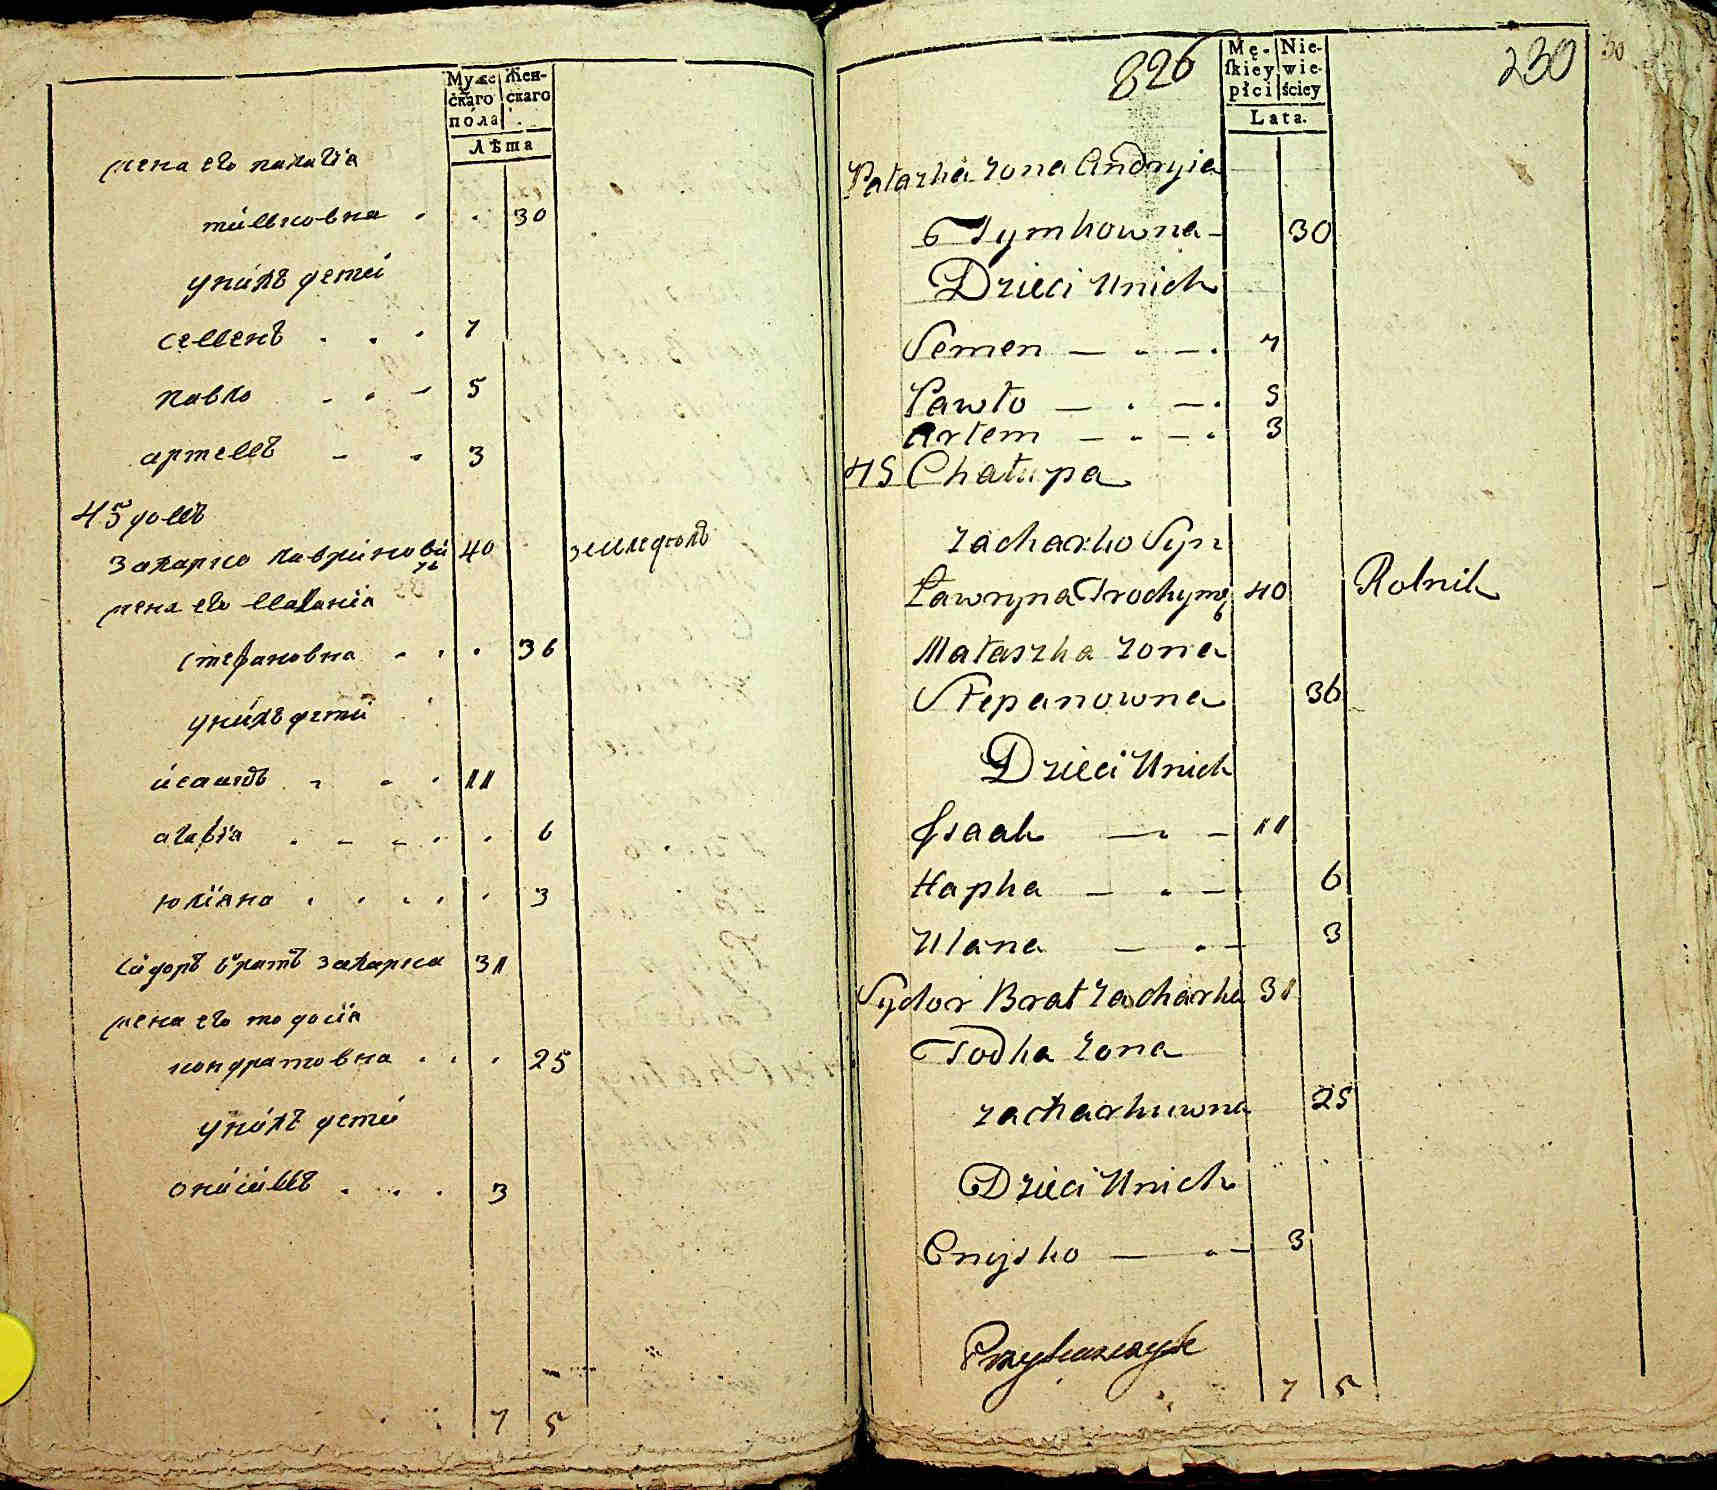 Муже
скаго
пола
Жен-
скаго
Лѣта
жена его палагія
тимковна . . 30
унихъ детей
семенъ . . . 7
павло . . - 5
артемъ - . 3
45 домъ
Захарко лавриновичъ 40 земледелъ
жена его маланія
стефановна . . . 36
унихъ детей
исаакъ . . . 11
агафія . . . . . 6
юліана . . . . . 3
сидоръ братъ захарка 31
жена его тодосія
кондратовна . . . 25
унихъ детей
онисимъ . . . 3
7 5
826
Mę-
skiey
płci
Nie-
wie-
ściey
Lata.
230
30
Pałazka żona Andryia
Tymkowna - 30
Dzieci Unich
Semen — . — . 7
Pawło — . — . 5
Artem — . — . 3
45 Chałupa
Zacharko Syn
Ławryna Trochym 40 Rolnik
Małaszka żona
Stepanowna 36
Dzieci Unich
Jsaak — . — 11
Hapka — . — 6
Ulana — . — 3
Sydor Brat Zacharka 31
Todka żona
Zacharkuwna 25
Dzieci Unich
Onysko — . — 3
7 5